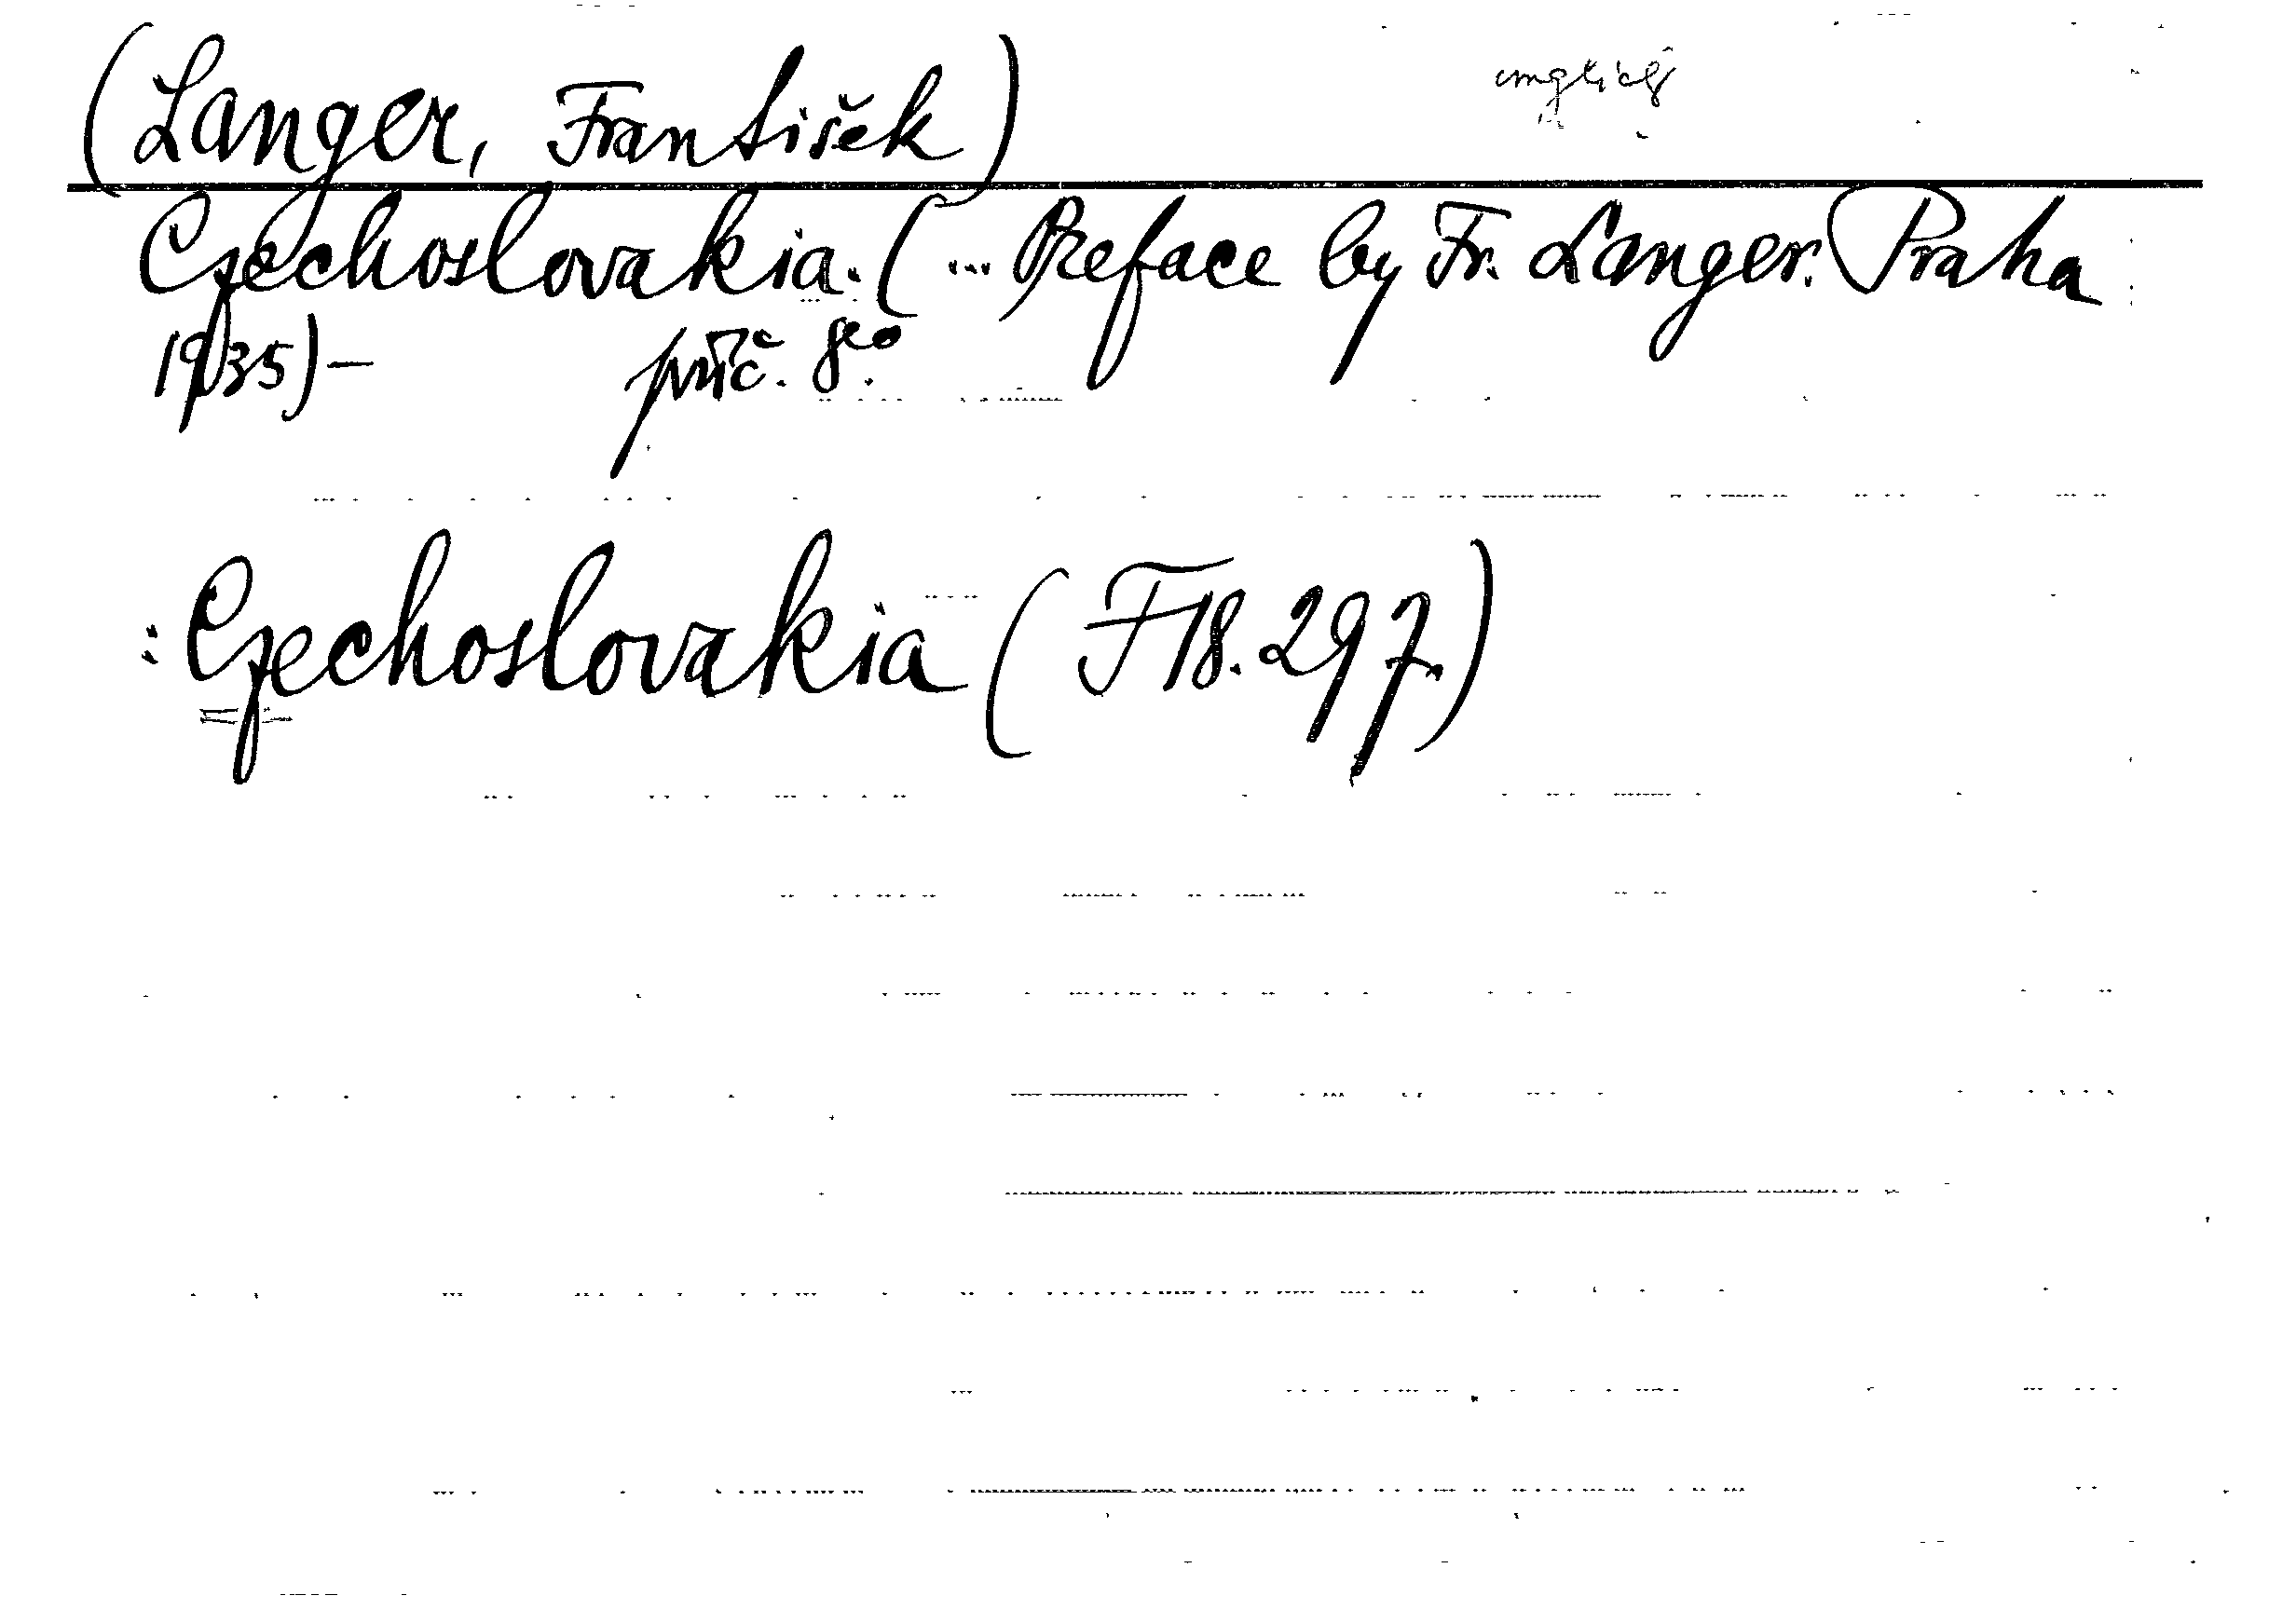 (Langer, František) anglický
Czechoslovakia. (... Preface by Fr. Langer. Praha
1935) – příč. 8°.
: Czechoslovakia (F 18.297.)